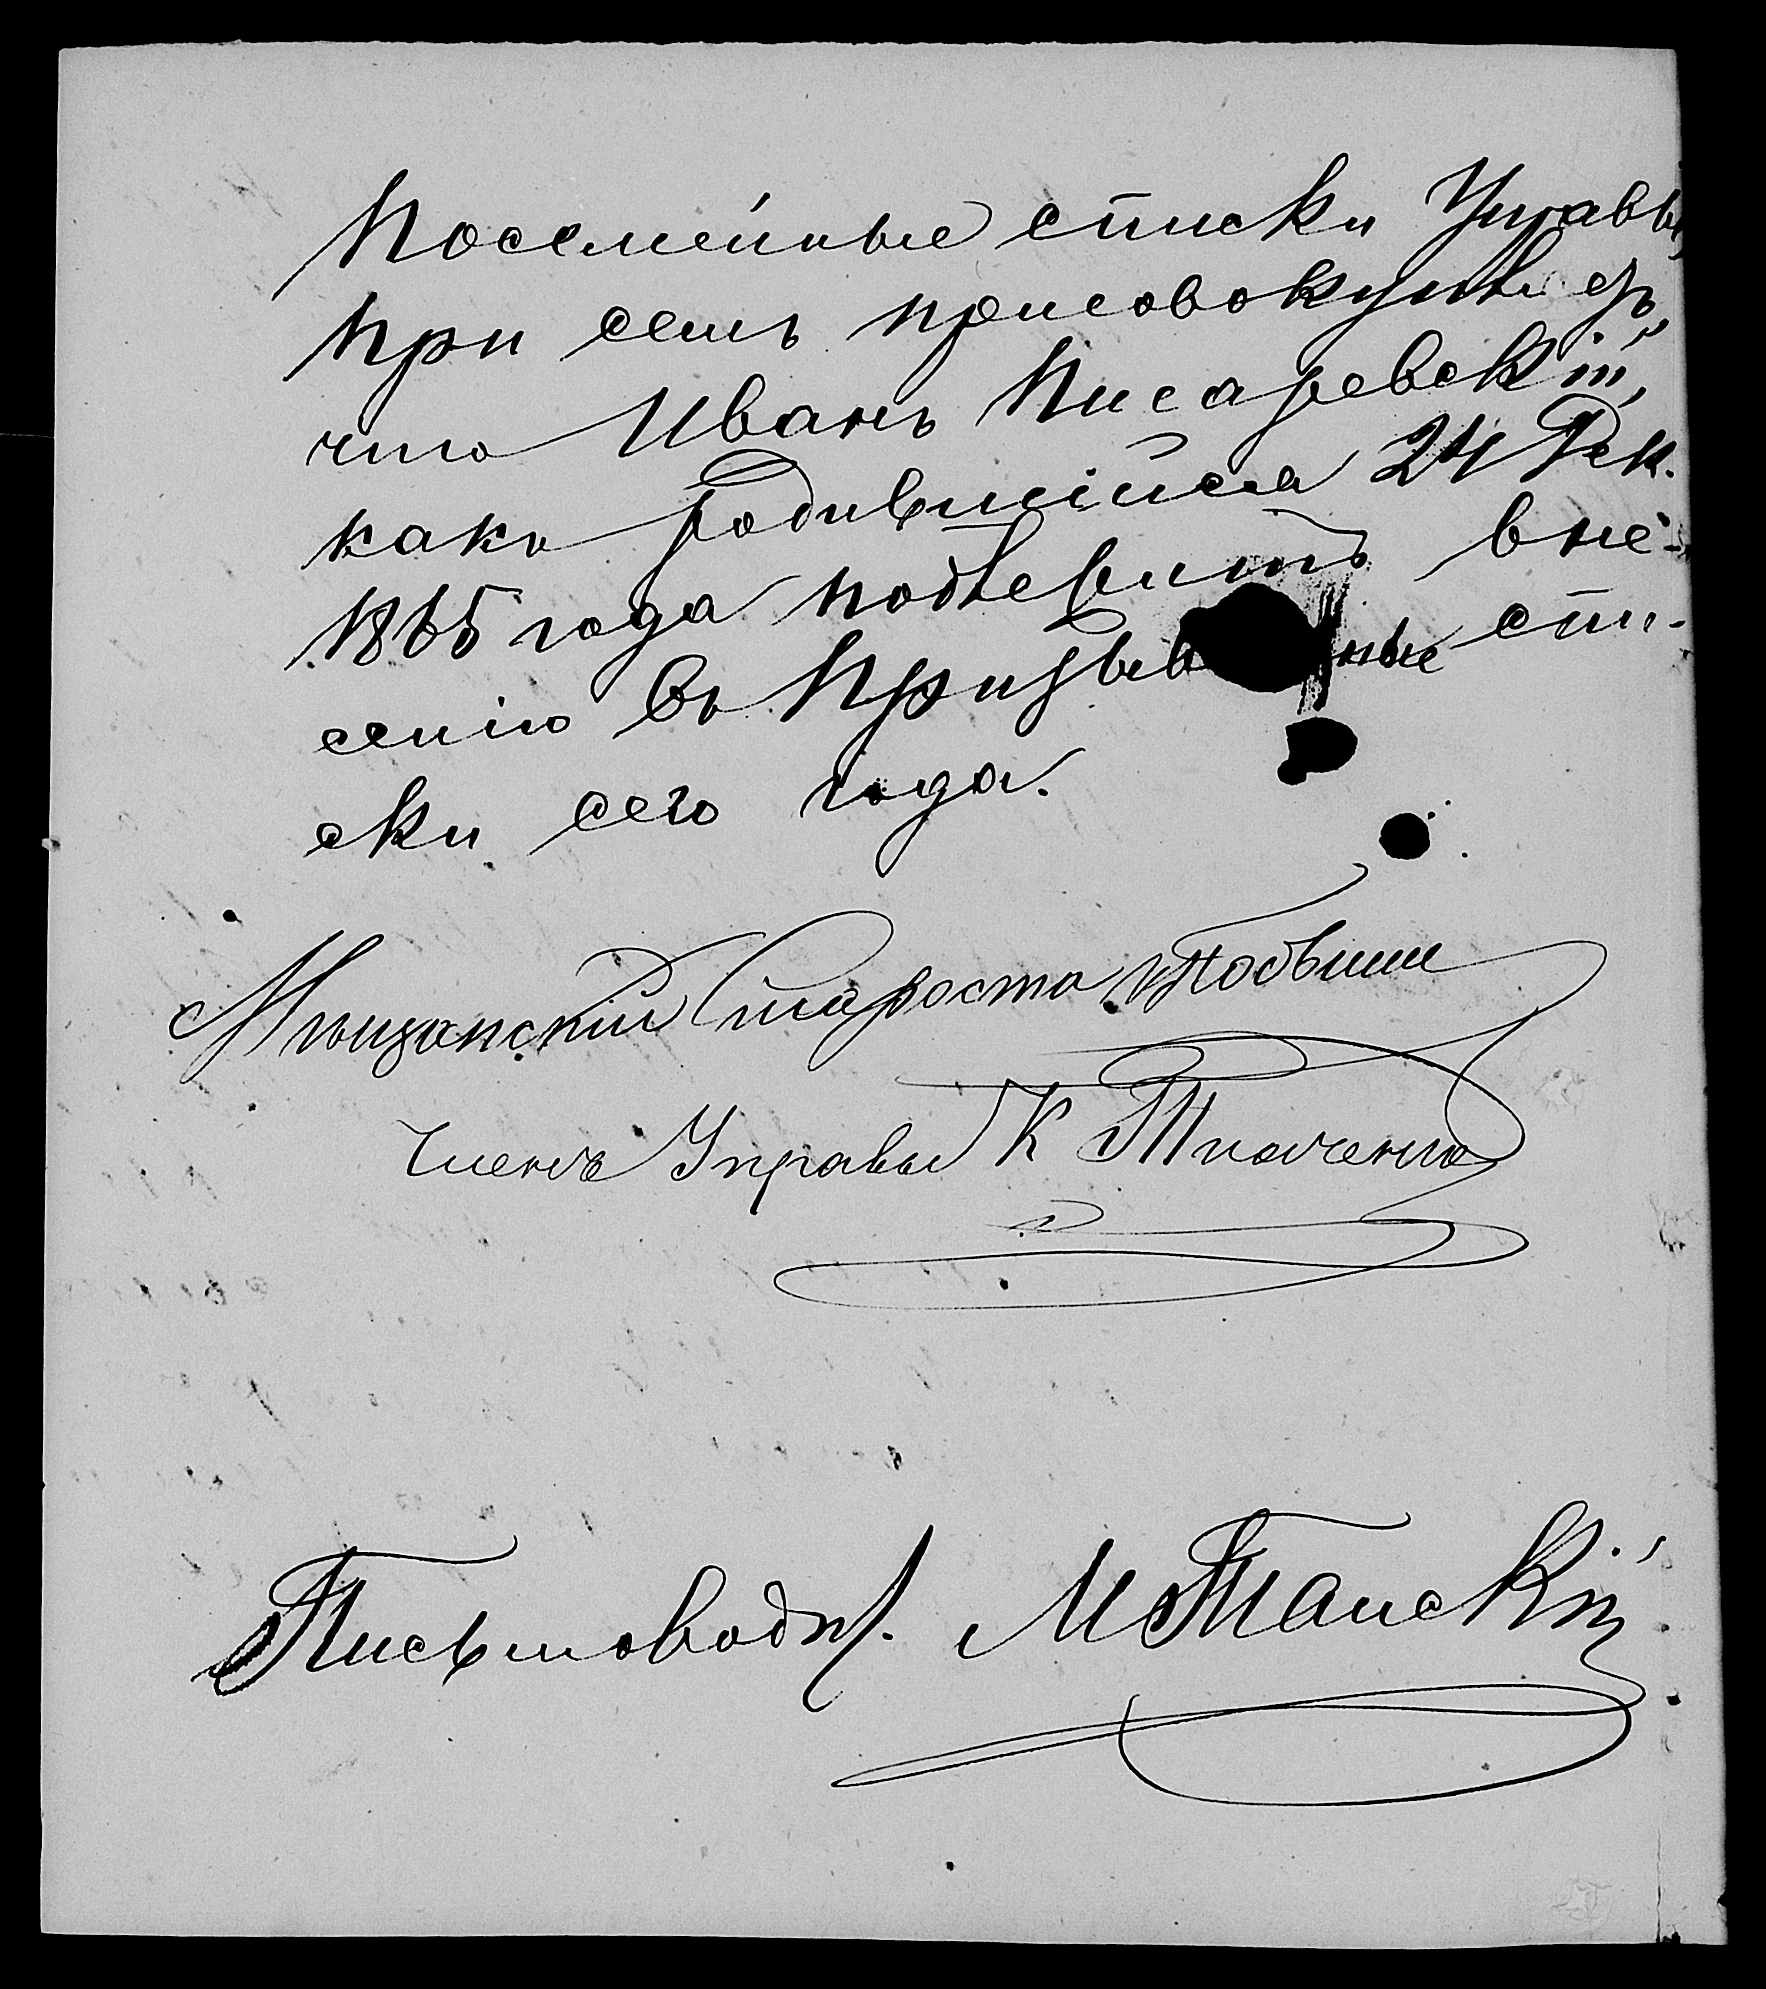 Посемейные списки Управы,
при семъ присовокупляетъ,
что Иванъ Писаревскій,
какъ родившійся 24 Дек.
1865 года подлежитъ вне-
сенію въ призывные спи-
ски сего года.
Мѣщанскій Староста
Членъ Управы К Ткаченко
Письмовод. М Танскій.